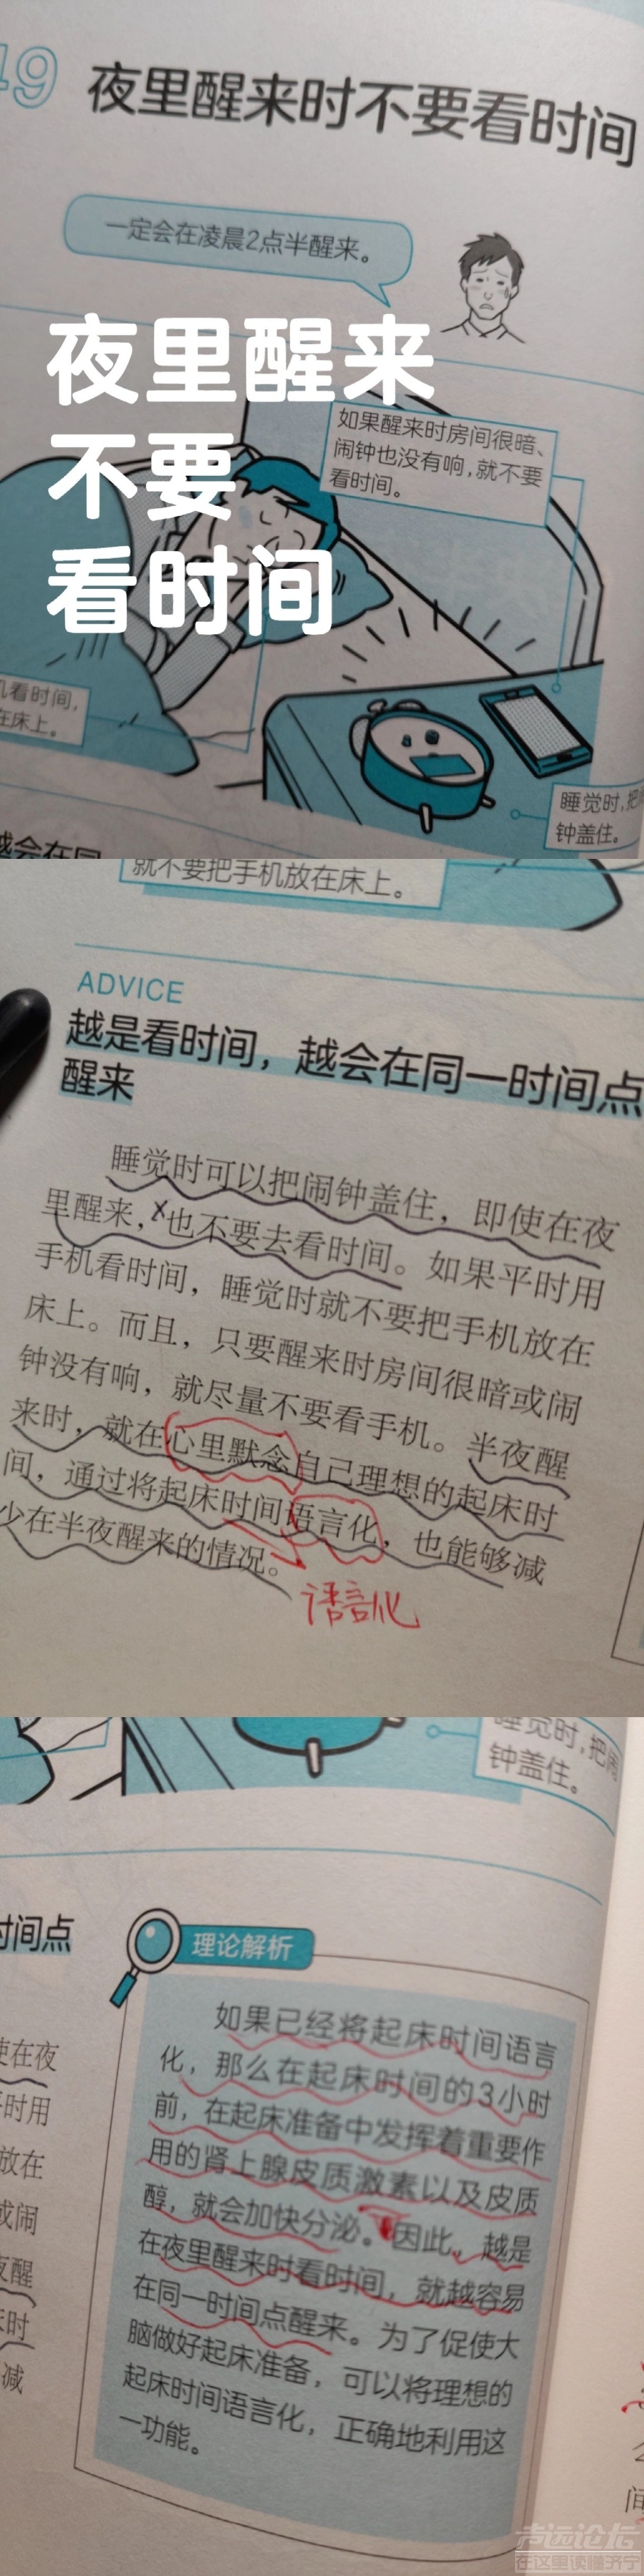 49 夜里醒来时不要看时间
一定会在凌晨2点半醒来。
夜里醒来
不要
看时间
如果醒来时房间很暗、
闹钟也没有响,就不要
看时间。
机看时间,
在床上。
睡觉时,把闹
钟盖住。
越会在同
就不要把手机放在床上。
ADVICE
越是看时间，越会在同一时间点
醒来
睡觉时可以把闹钟盖住，即使在夜
里醒来，也不要去看时间。如果平时用
手机看时间，睡觉时就不要把手机放在
床上。而且，只要醒来时房间很暗或闹
钟没有响，就尽量不要看手机。半夜醒
来时，就在心里默念自己理想的起床时
间，通过将起床时间语言化，也能够减
少在半夜醒来的情况。
语言化
睡觉时,把闹
钟盖住。
时间点
使在夜
时用
放在
或闹
夜醒
床时
减
理论解析
如果已经将起床时间语言
化，那么在起床时间的3小时
前，在起床准备中发挥着重要作
用的肾上腺皮质激素以及皮质
醇，就会加快分泌。因此，越是
在夜里醒来时看时间，就越容易
在同一时间点醒来。为了促使大
脑做好起床准备，可以将理想的
起床时间语言化，正确地利用这
一功能。
间
声远论坛
在这里读懂济宁